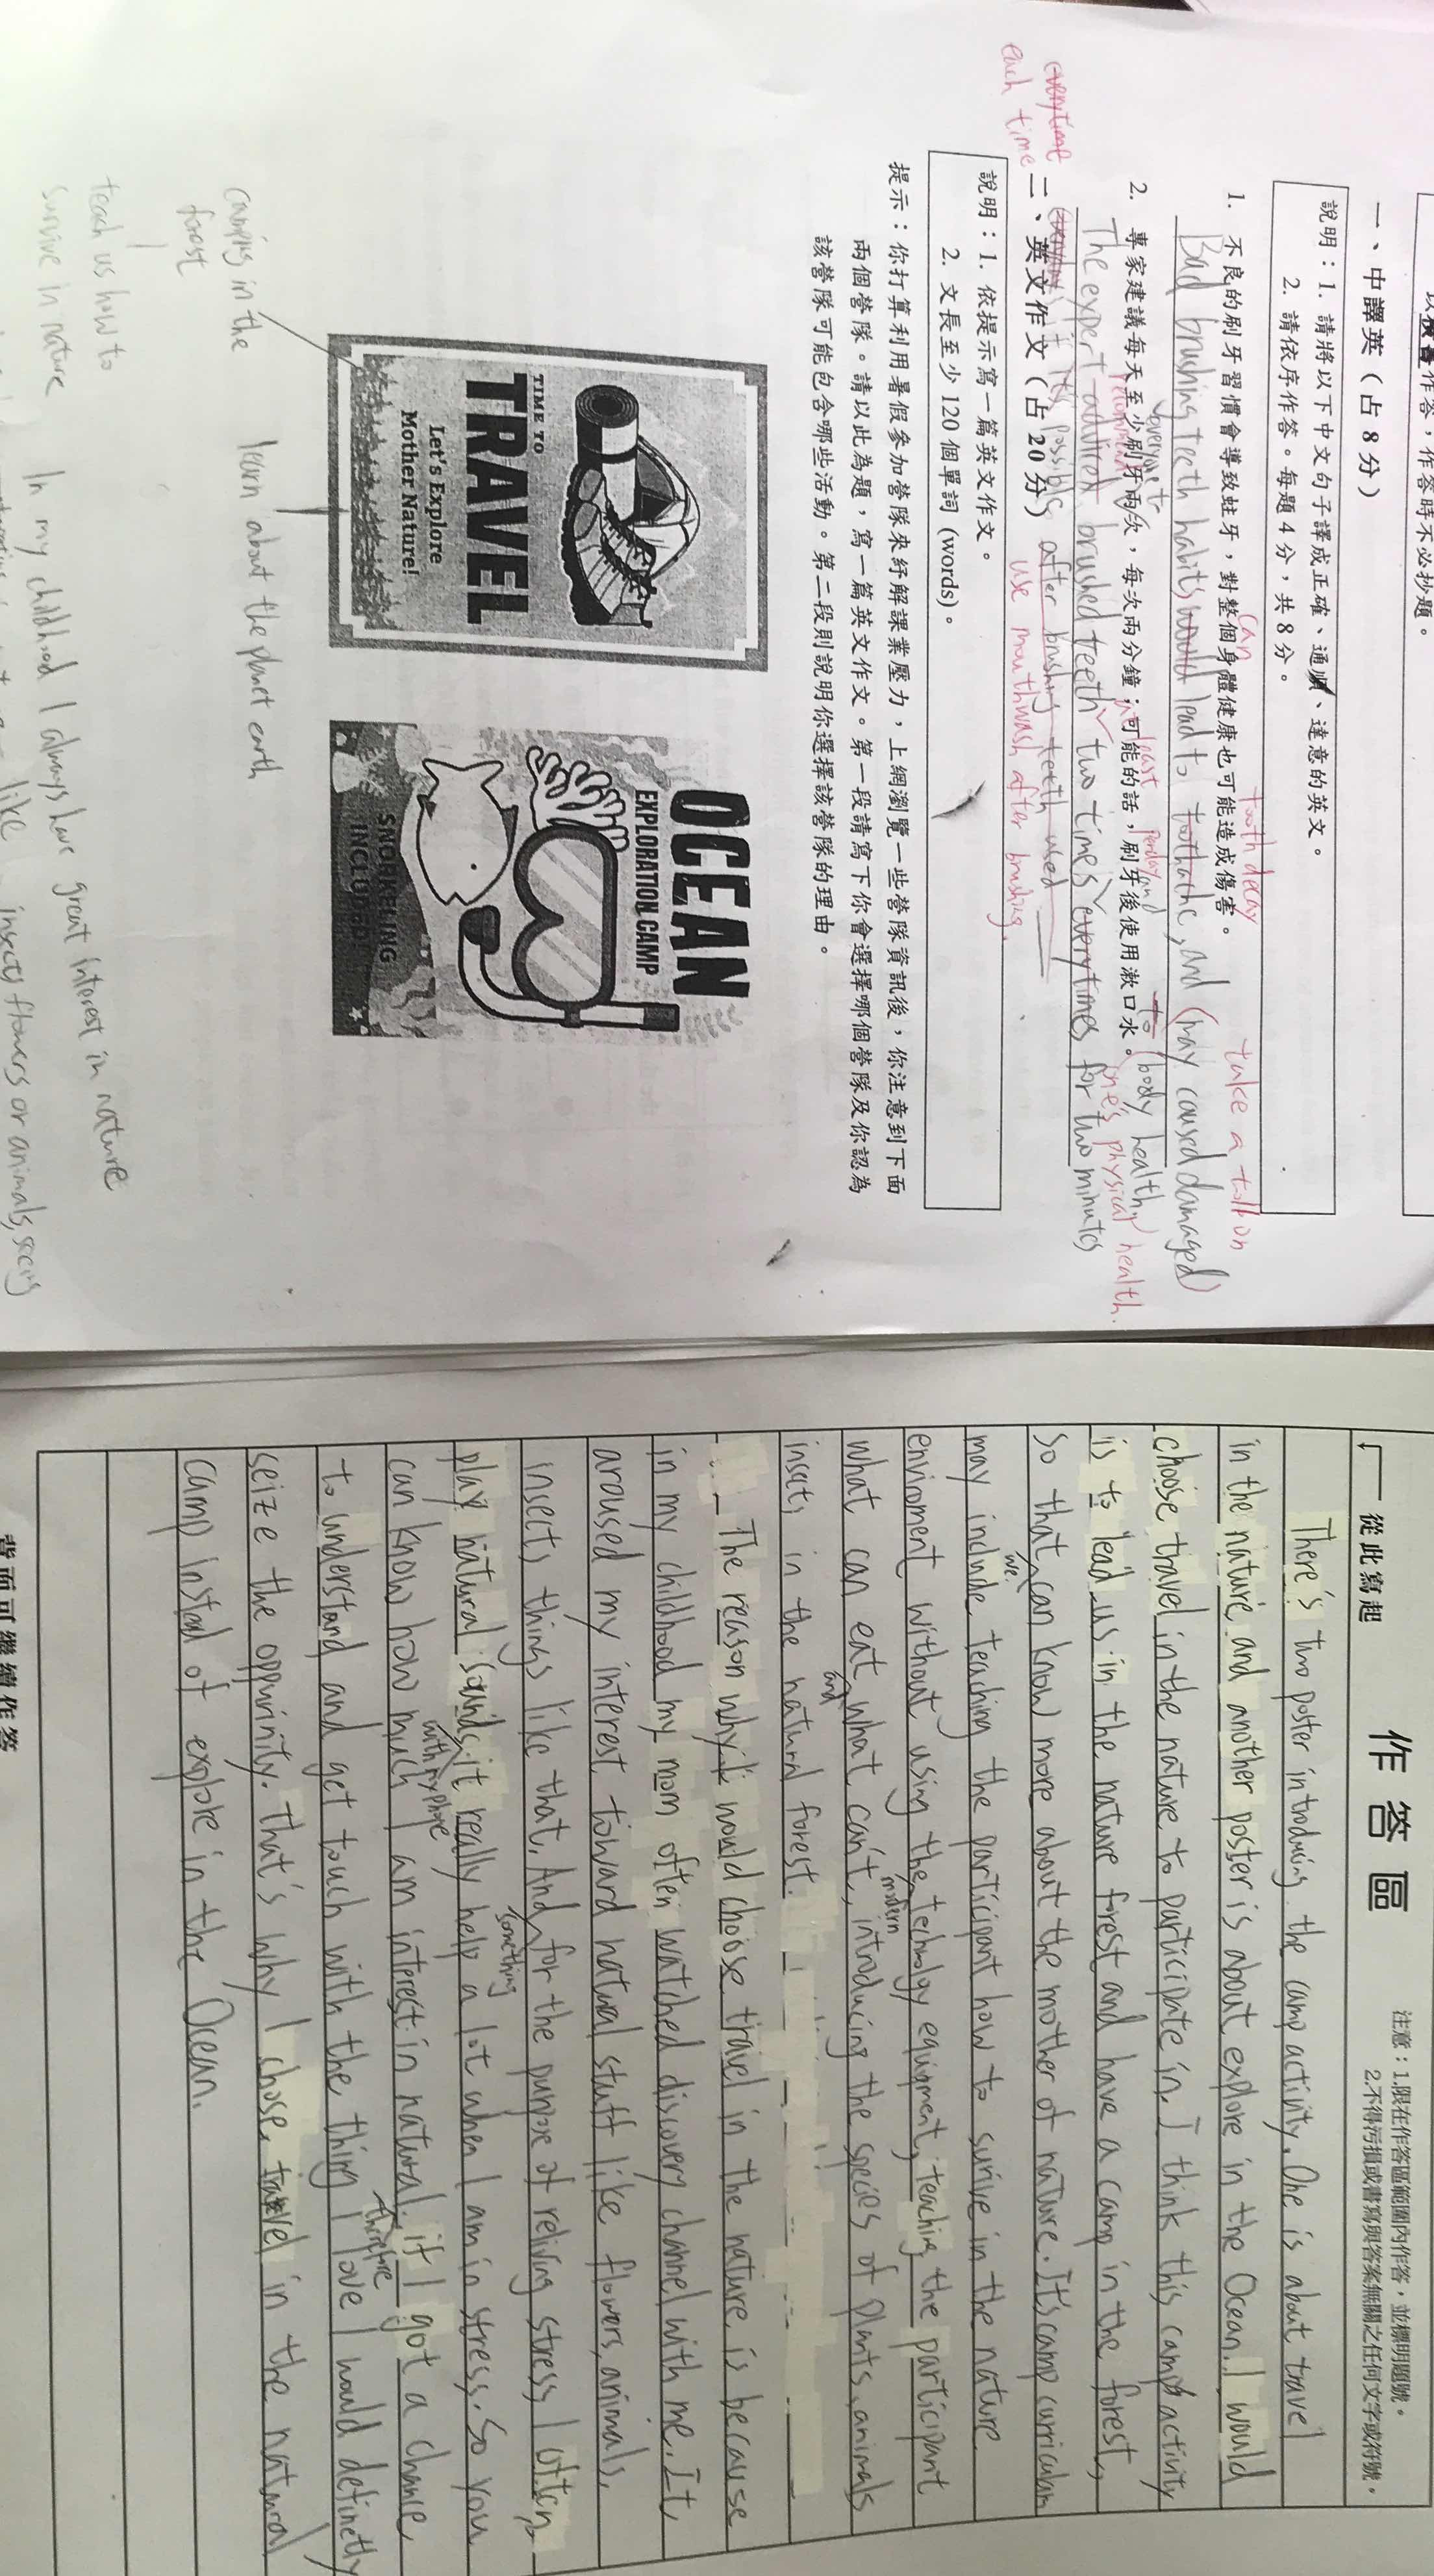 作答,作答時不必抄題。
一、中譯英(占 8 分)
說明:1. 請將以下中文句子譯成正確、通順、達意的英文。
2. 請依序作答。每題 4 分,共 8 分。
1. 不良的刷牙習慣會導致蛀牙,對整個身體健康也可能造成傷害。
can tooth decay take a toll on
Bad brushing teeth habits would lead to toothache, and (may caused damaged)
to (body healthy)
one's physical health.
2. 專家建議每天至少刷牙兩次,每次兩分鐘;可能的話,刷牙後使用漱口水。
least perday and
The expert brushed teeth two times everytimes for two minutes
if it's possible after brushing teeth used
everytime
each time
use mouthwash after brushing.
二、英文作文(占 20 分)
說明:1. 依提示寫一篇英文作文。
2. 文長至少 120 個單詞 (words)。
提示:你打算利用暑假參加營隊來紓解課業壓力,上網瀏覽一些營隊資訊後,你注意到下面
兩個營隊。請以此為題,寫一篇英文作文。第一段請寫下你會選擇哪個營隊及你認為
該營隊可能包含哪些活動。第二段則說明你選擇該營隊的理由。
TIME TO
TRAVEL
Let's Explore
Mother Nature!
OCEAN
EXPLORATION CAMP
SNORKELING
INCLUDED
camping in the
forest
learn about the planet earth
teach us how to
survive in nature
In my childhood I always have great interest in nature
like insects flowers or animals,
從此寫起
作答區
注意:1.限在作答區範圍內作答,並標明題號。
2.不得污損或書寫與答案無關之任何文字或符號。
There's two poster introducing the camp activity. One is about travel
in the nature and another poster is about explore in the Ocean. I would
choose travel in the nature to participate in. I think this camp activity
is to lead us in the nature forest and have a camp in the forest,
so that we can know more about the mother of nature. It's camp curriculum
may include teaching the participant how to surive in the nature
enviroment without using the modern technology equipment, teaching the participant
what can eat and what can't, introducing the species of plants, animals
insects in the natural forest.
The reason why I would choose travel in the nature is because
in my childhood my mom often watched discovery channel with me. It
aroused my interest toward natural stuff like flowers, animals,
insects things like that. And for the purpose of reliving stress, I often
play natural sounds with my phone it really help a lot when I am in stress. So you
can know how much I am interest in natural. if I got a chance
to understand and get touch with the thing I love therefore I would definetly
seize the oppurinity. that's why I chose travel in the natural
camp instead of explore in the Ocean.
背面可繼續作答